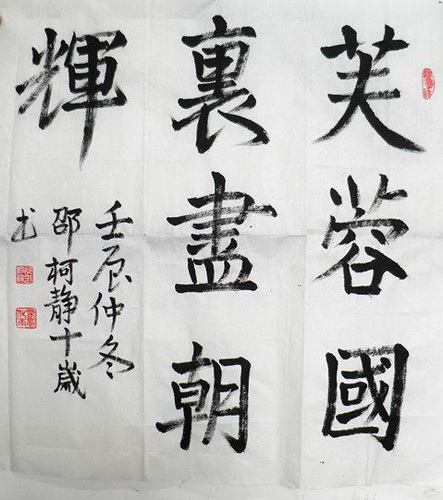 芙蓉國
裏盡朝
輝
壬辰仲冬
邵柯靜十歲
书